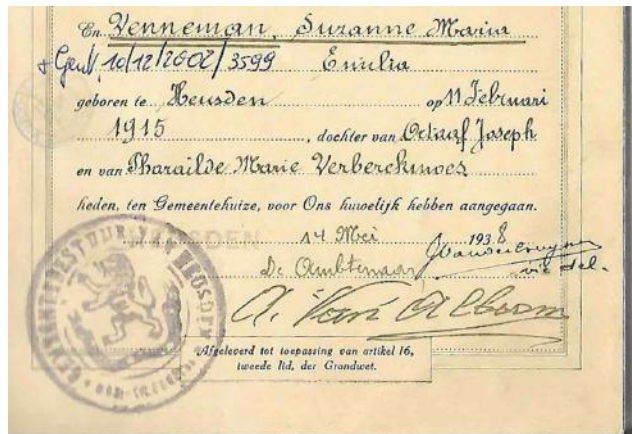 En Venneman, Suzanne Maria
+ Gent, 10/12/2002/3599 Emilia
geboren te Heusden op 11 Februari
1915, dochter van Octaaf Joseph
en van Pharaïlde Marie Verberckmoes
heden, ten Gemeentehuize, voor Ons huwelijk hebben aangegaan.
HEUSDEN
14 Mei 1938
De Ambtenaar
A. Van Alboom
GEMEENTEBESTUUR VAN HEUSDEN
Afgeleverd tot toepassing van artikel 16,
tweede lid, der Grondwet.